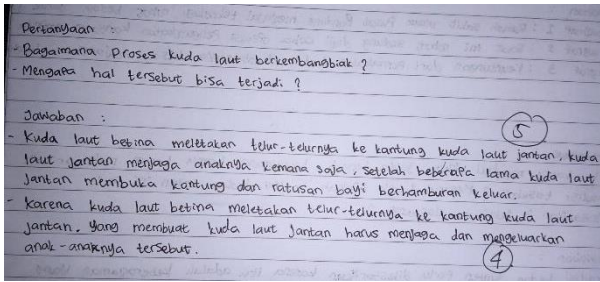 Pertanyaan
- Bagaimana Proses kuda laut berkembangbiak ?
- Mengapa hal tersebut bisa terjadi ?
Jawaban :
5
- Kuda laut betina meletakan telur-telurnya ke kantung kuda laut jantan, kuda
laut jantan menjaga anaknya kemana saja, setelah beberapa lama kuda laut
jantan membuka kantung dan ratusan bayi berhamburan keluar.
- Karena kuda laut betina meletakan telur-telurnya ke kantung kuda laut
jantan. Yang membuat kuda laut jantan harus menjaga dan mengeluarkan
anak-anaknya tersebut.
4